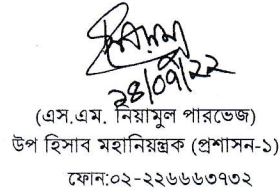 ২৪/০৭/২২
(এস.এম. নিয়ামুল পারভেজ)
উপ হিসাব মহানিয়ন্ত্রক (প্রশাসন-১)
ফোন:০২-২২৬৬৬৩৭৩২